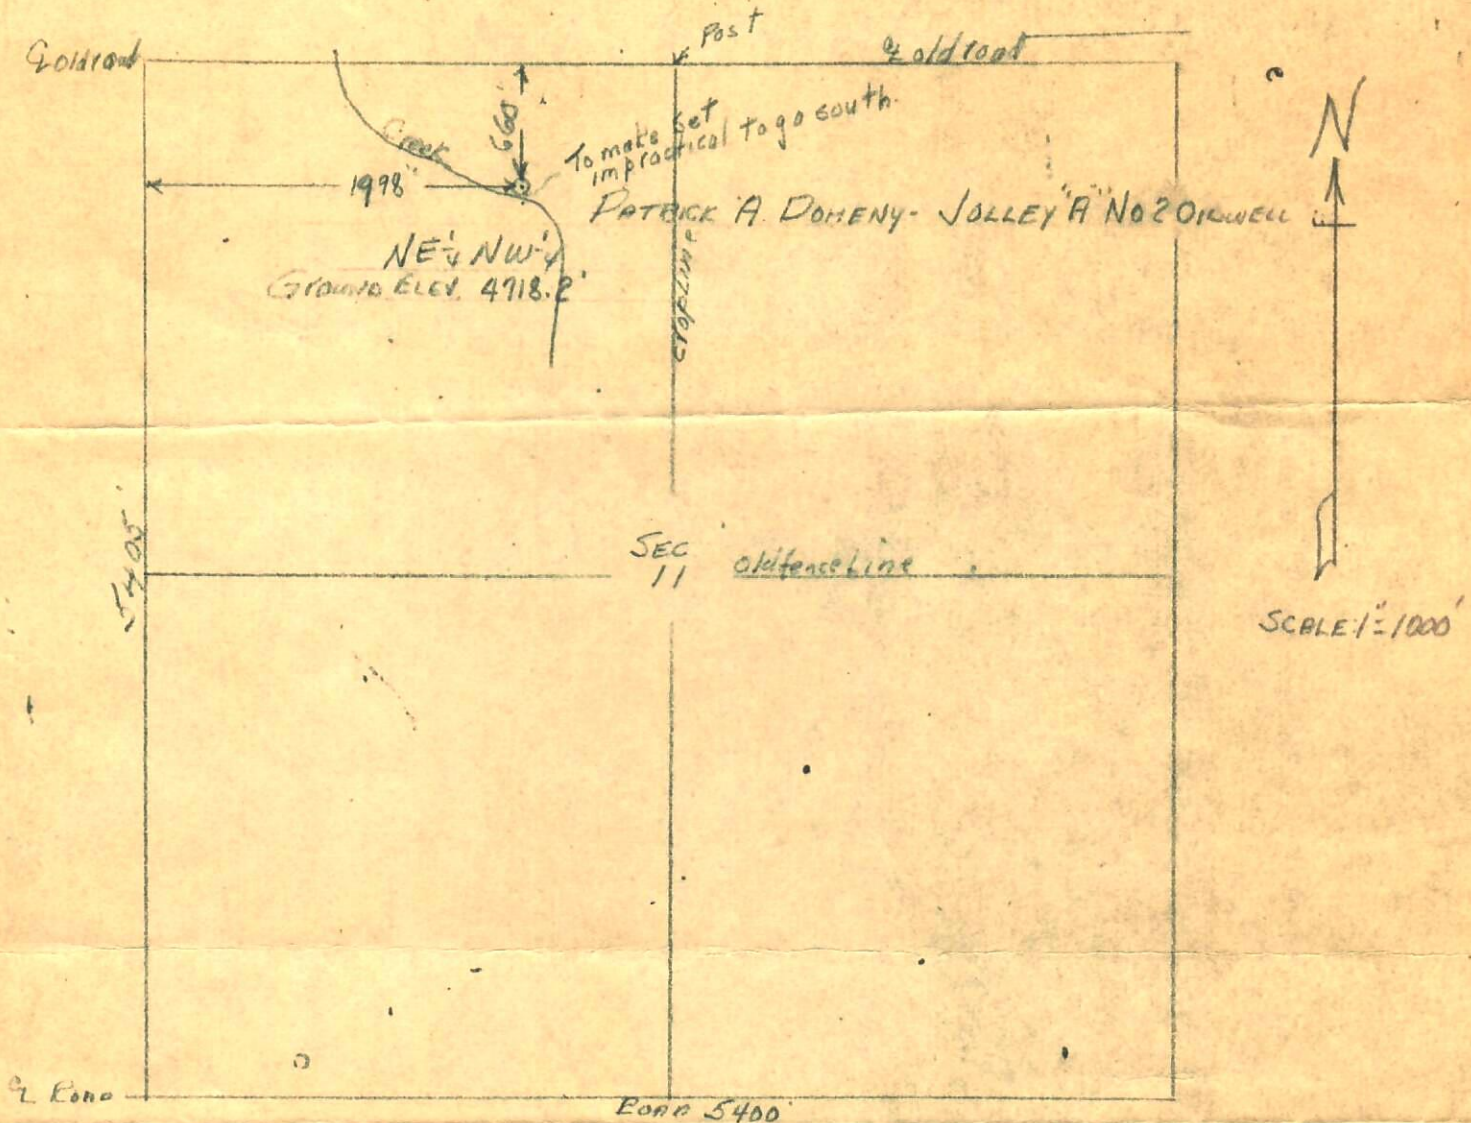 ℄ old road
Post
℄ old road
N
660'
Creek
To make set
impractical to go south
1998'
PATRICK A. DOHENY - JOLLEY "A" No 2 OILWELL
NE¼ NW¼
GROUND ELEV. 4718.2'
cropline
5405'
SEC
11
old fence Line
SCALE 1" = 1000'
℄ ROAD
ROAD 5400'